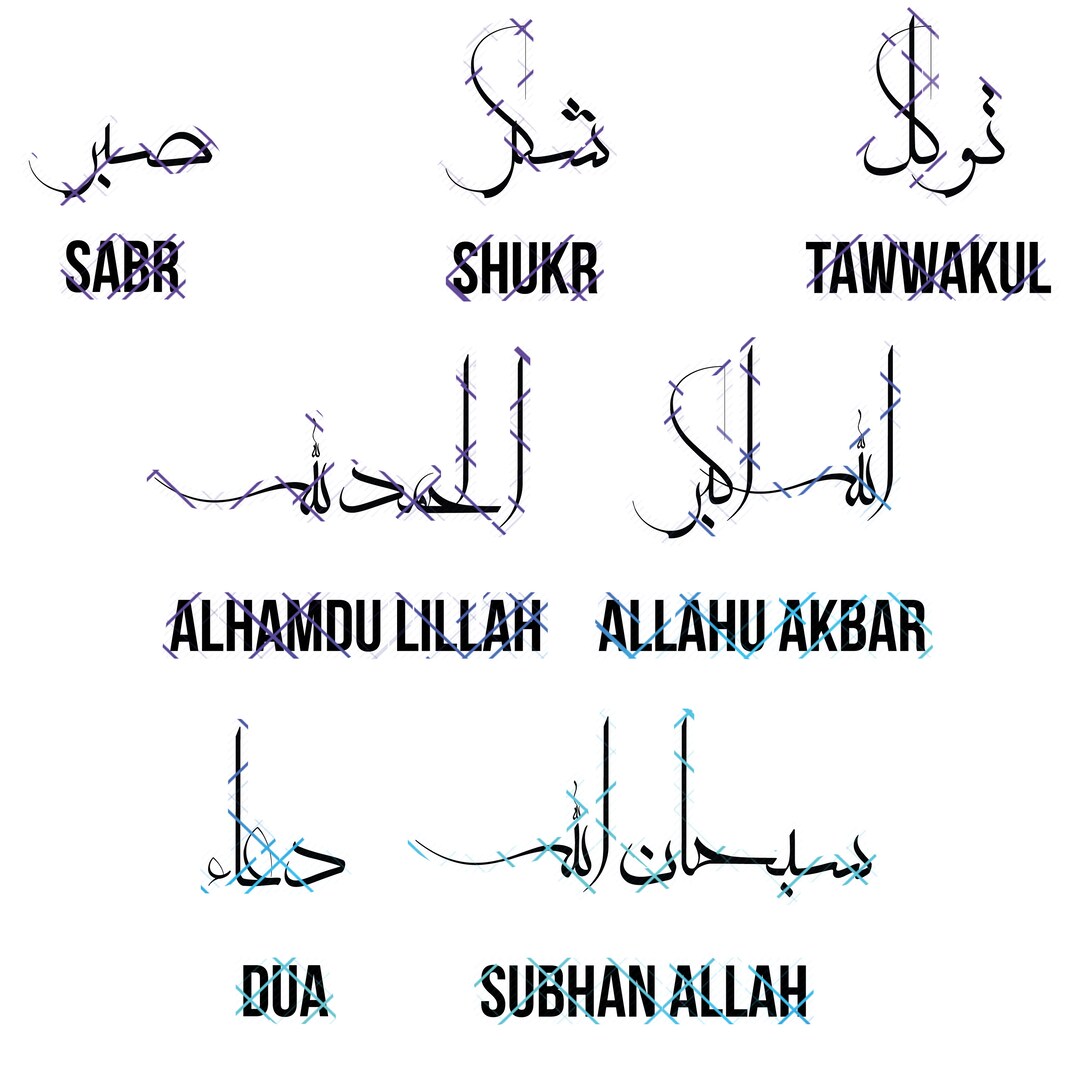 صبر
شكر
توكل
SABR
SHUKR
TAWWAKUL
الحمد لله
الله اكبر
ALHAMDU LILLAH
ALLAHU AKBAR
دعاء
سبحان الله
DUA
SUBHAN ALLAH